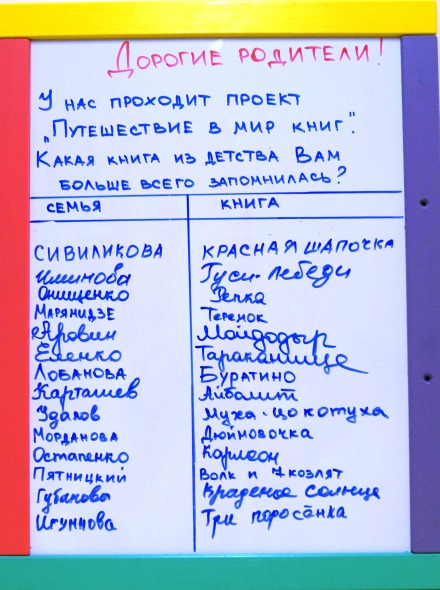 Дорогие родители!
У нас проходит проект
„Путешествие в мир книг".
Какая книга из детства Вам
больше всего запомнилась?
семья книга
Сивиликова Красная шапочка
Илинова Гуси-лебеди
Онищенко Репка
Марянидзе Теремок
Яровин Мойдодыр
Еленко Тараканище
Лобанова Буратино
Карташев Айболит
Удалов Муха-цокотуха
Морданова Дюймовочка
Остапенко Карлсон
Пятницкий Волк и 7 козлят
Губановы Краденое солнце
Игумнова Три поросёнка